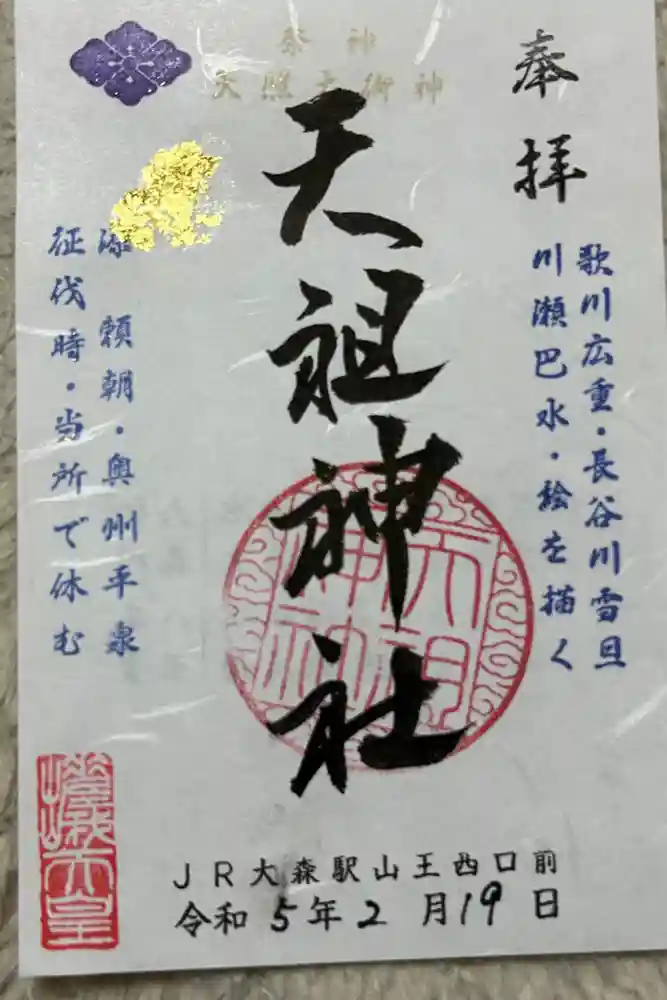 奉拝
歌川広重・長谷川雪旦
川瀬巴水・絵を描く
祭神
天照大御神
天祖神社
天祖神社
源頼朝・奥州平泉
征伐時・当所で休む
嵯峨天皇
JR大森駅山王西口前
令和5年2月19日